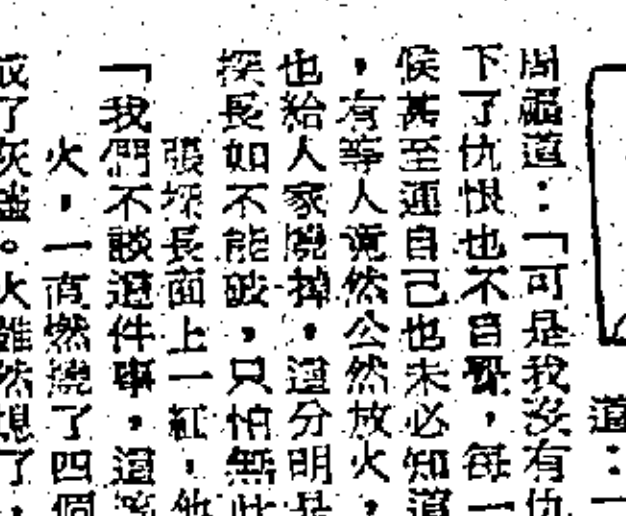 道：一
周福道：「可是我沒有仇
下了仇恨也不自覺，每一
侯甚至連自己也未必知道
，有等人竟然公然放火，
也給人家燒掉，這分明是
探長如不能破，只怕無此
張探長面上一紅，他
「我們不談這件事，這
火，一直燃燒了四個
成了灰燼。火雖然熄了，